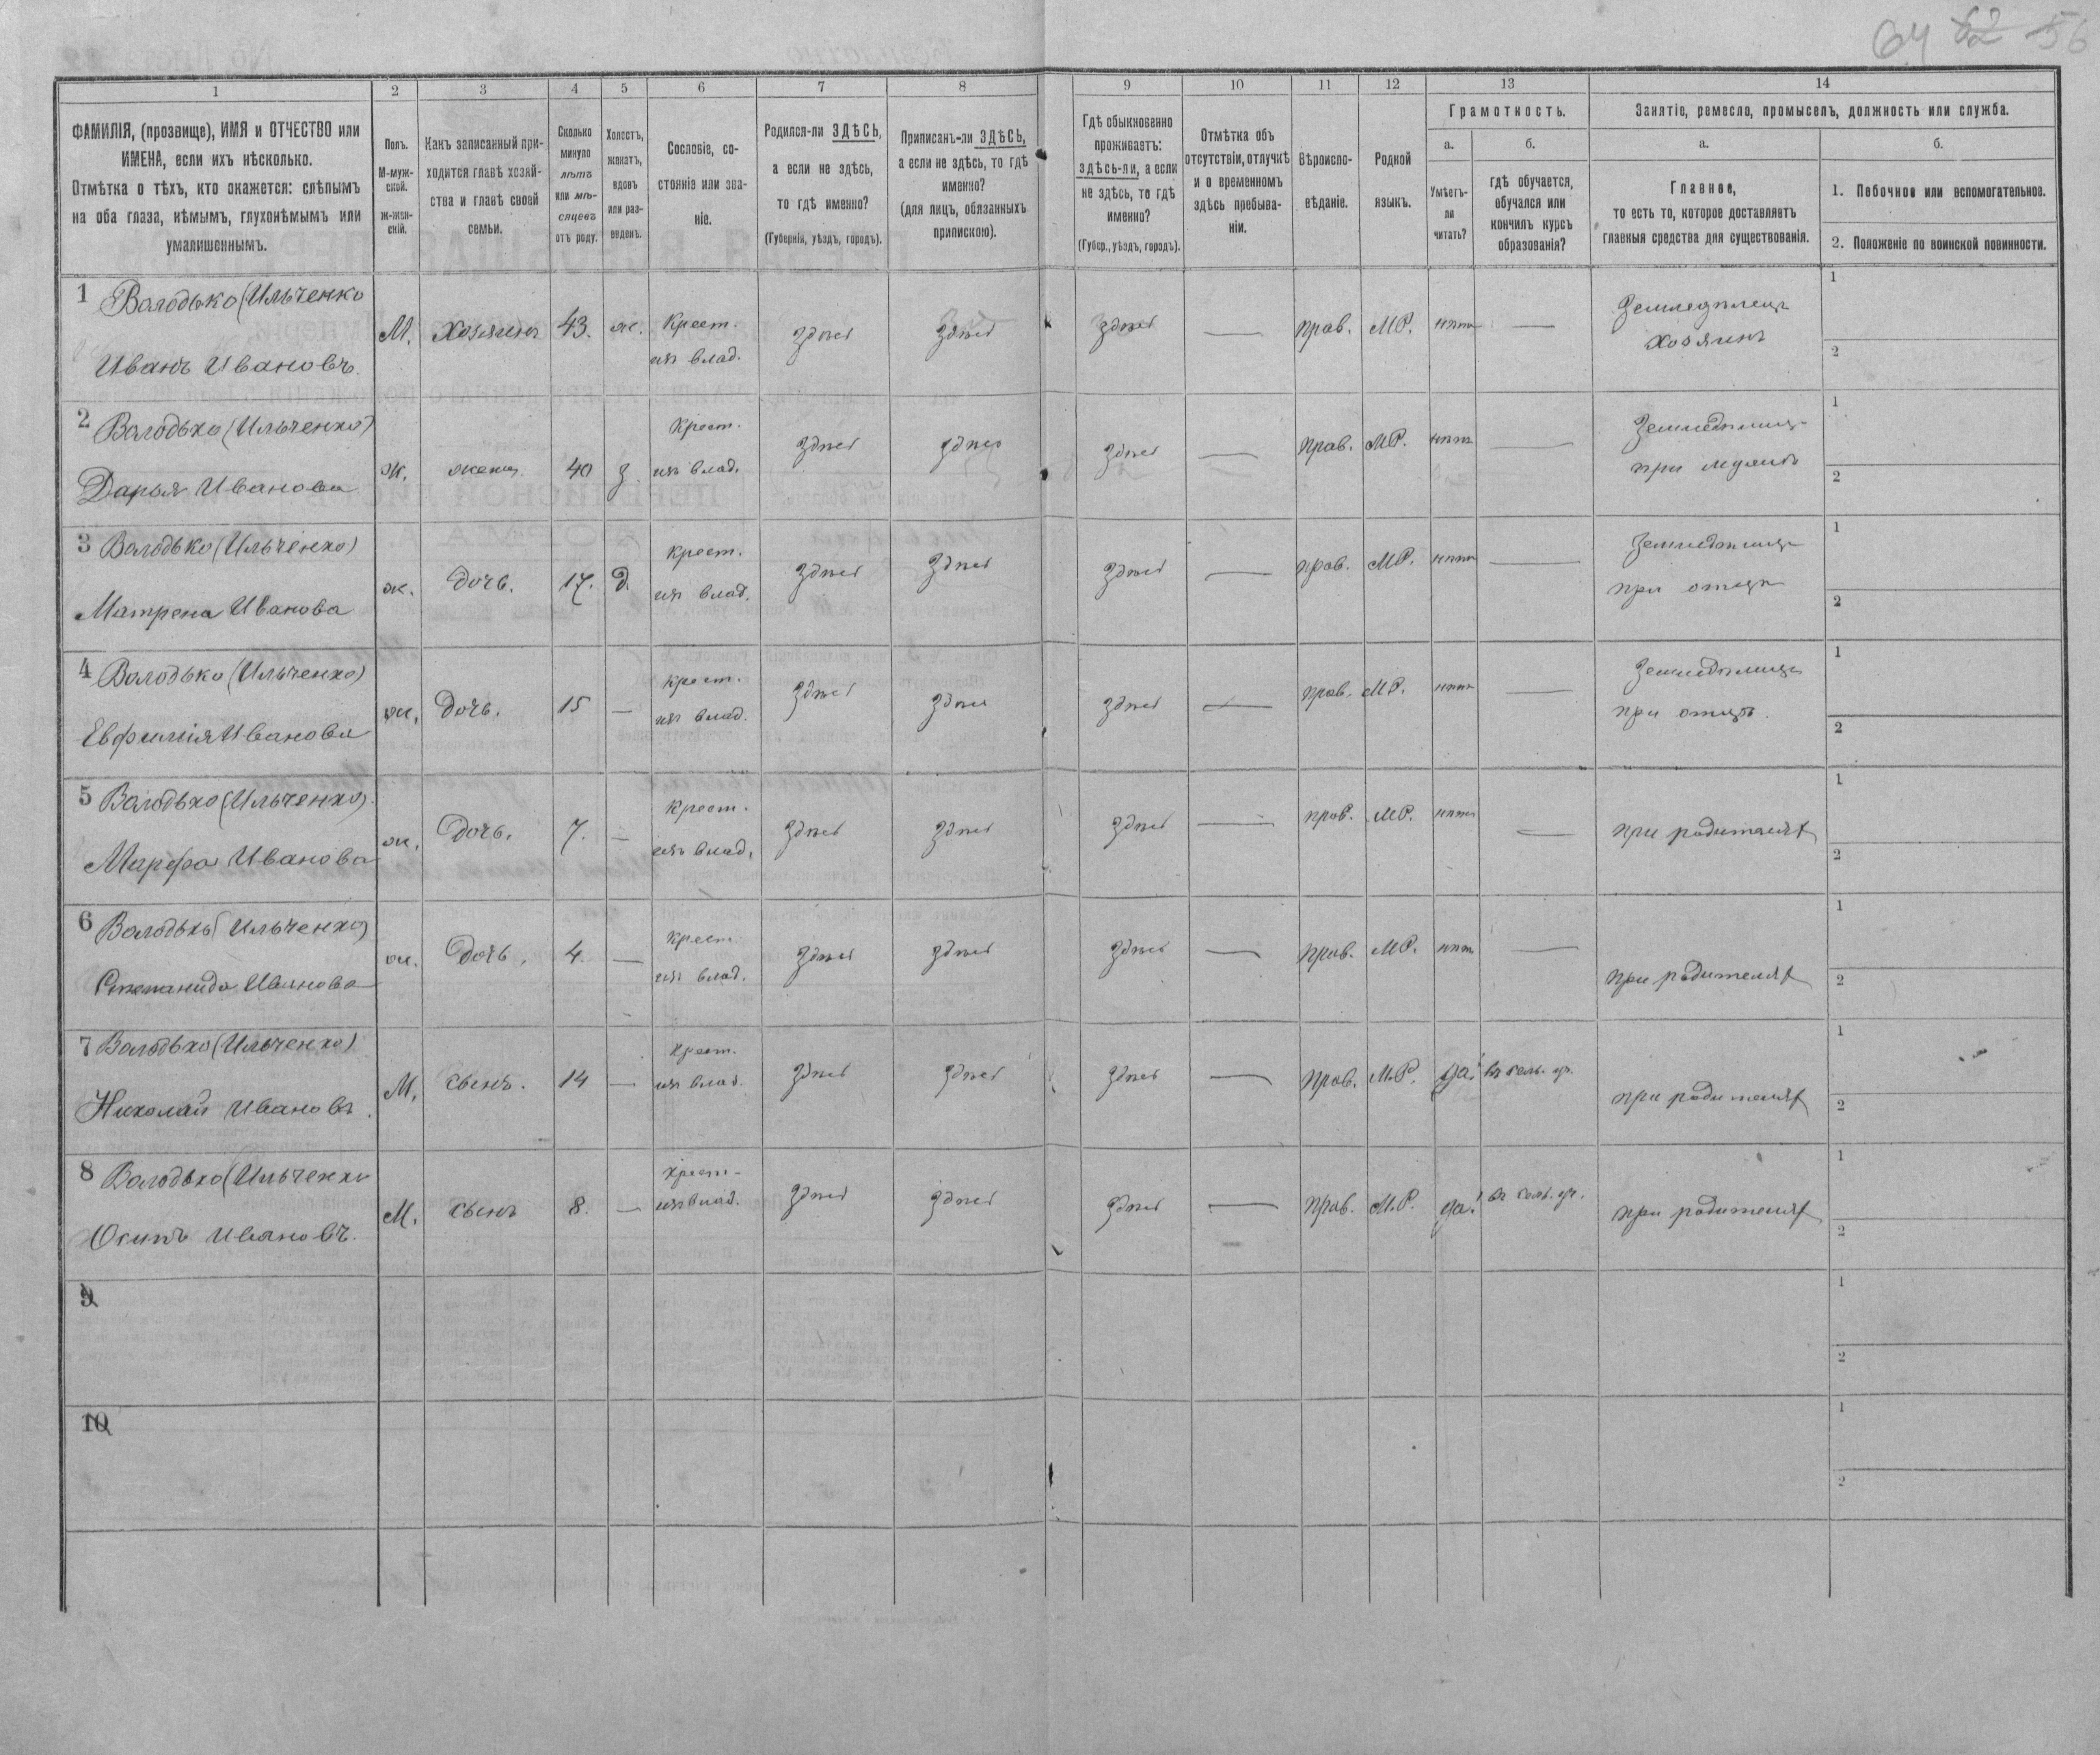 64 52 56
1 2 3 4 5 6 7 8 9 10 11 12 13 14
ФАМИЛІЯ, (прозвище), ИМЯ и ОТЧЕСТВО или ИМЕНА, если ихъ нѣсколько.
Отмѣтка о тѣхъ, кто окажется: слѣпымъ на оба глаза, нѣмымъ, глухонѣмымъ или умалишеннымъ.
Полъ. М-мужской. Ж-женскій.
Какъ записанный приходится главѣ хозяйства и главѣ своей семьи.
Сколько минуло лѣтъ или мѣсяцевъ отъ роду.
Холостъ, женатъ, вдовъ или разведенъ.
Сословіе, состояніе или званіе.
Родился-ли ЗДѢСЬ, а если не здѣсь, то гдѣ именно?
(Губернія, уѣздъ, городъ).
Приписанъ-ли ЗДѢСЬ, а если не здѣсь, то гдѣ именно?
(для лицъ, обязанныхъ припискою).
Гдѣ обыкновенно проживаетъ: здѣсь-ли, а если не здѣсь, то гдѣ именно?
(Губер., уѣздъ, городъ).
Отмѣтка объ отсутствіи, отлучкѣ и о временномъ здѣсь пребываніи.
Вѣроисповѣданіе.
Родной языкъ.
Грамотность.
а. Умѣетъ-ли читать?
б. гдѣ обучается, обучался или кончилъ курсъ образованія?
Занятіе, ремесло, промыселъ, должность или служба.
а. Главное,
то есть то, которое доставляетъ главныя средства для существованія.
б.
1. Побочное или вспомогательное.
2. Положеніе по воинской повинности.
1 Володько (Ильченко
Иванъ Ивановъ
М. хозяинъ 43. ж. Крест. изъ влад. здѣсь здѣсь здѣсь — прав. МР. нѣтъ — Земледѣлецъ хозяинъ 1 2
2 Володько (Ильченко)
Дарья Иванова
ж. жена 40 з. Крест. изъ влад. здѣсь здѣсь здѣсь — прав. МР. нѣтъ — Земледѣлица при мужѣ 1 2
3 Володько (Ильченко)
Матрена Иванова
ж. дочь. 17. Д. Крест. изъ влад. здѣсь здѣсь здѣсь — прав. МР. нѣтъ — Земледѣлица при отцѣ 1 2
4 Володько (Ильченко)
Евфимія Иванова
ж. дочь. 15 — крест. изъ влад. здѣсь здѣсь здѣсь — прав. МР. нѣтъ — Земледѣлица при отцѣ. 1 2
5 Володько (Ильченко).
Марфа Иванова
ж. Дочь. 7. — Крест. изъ влад. здѣсь здѣсь здѣсь — прав. МР. нѣтъ — при родителях 1 2
6 Володько (Ильченко)
Степанида Иванова
ж. Дочь, 4. — Крест. изъ влад. здѣсь здѣсь здѣсь — прав. МР. нѣтъ — при родителях 1 2
7 Володько (Ильченко)
Николай Ивановъ.
М. сынъ. 14 — Крест. изъ влад. здѣсь здѣсь здѣсь — прав. М.Р. да! въ сель. уч. при родителях 1 2
8 Володько (Ильченко
Осипъ Ивановъ.
М. сынъ 8. — крест. изъ влад. здѣсь здѣсь здѣсь — прав. М.Р. да! въ сель. уч. при родителях 1 2
9 1 2
10 1 2